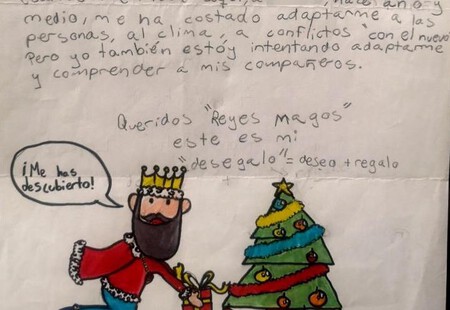 hace año y
medio, me ha costado adaptarme a las
personas, al clima, a conflictos "con el nuevo"
Pero yo también estoy intentando adaptarme
y comprender a mis compañeros.
Queridos "Reyes magos"
este es mi
"desegalo" = deseo + regalo
¡Me has
descubierto!